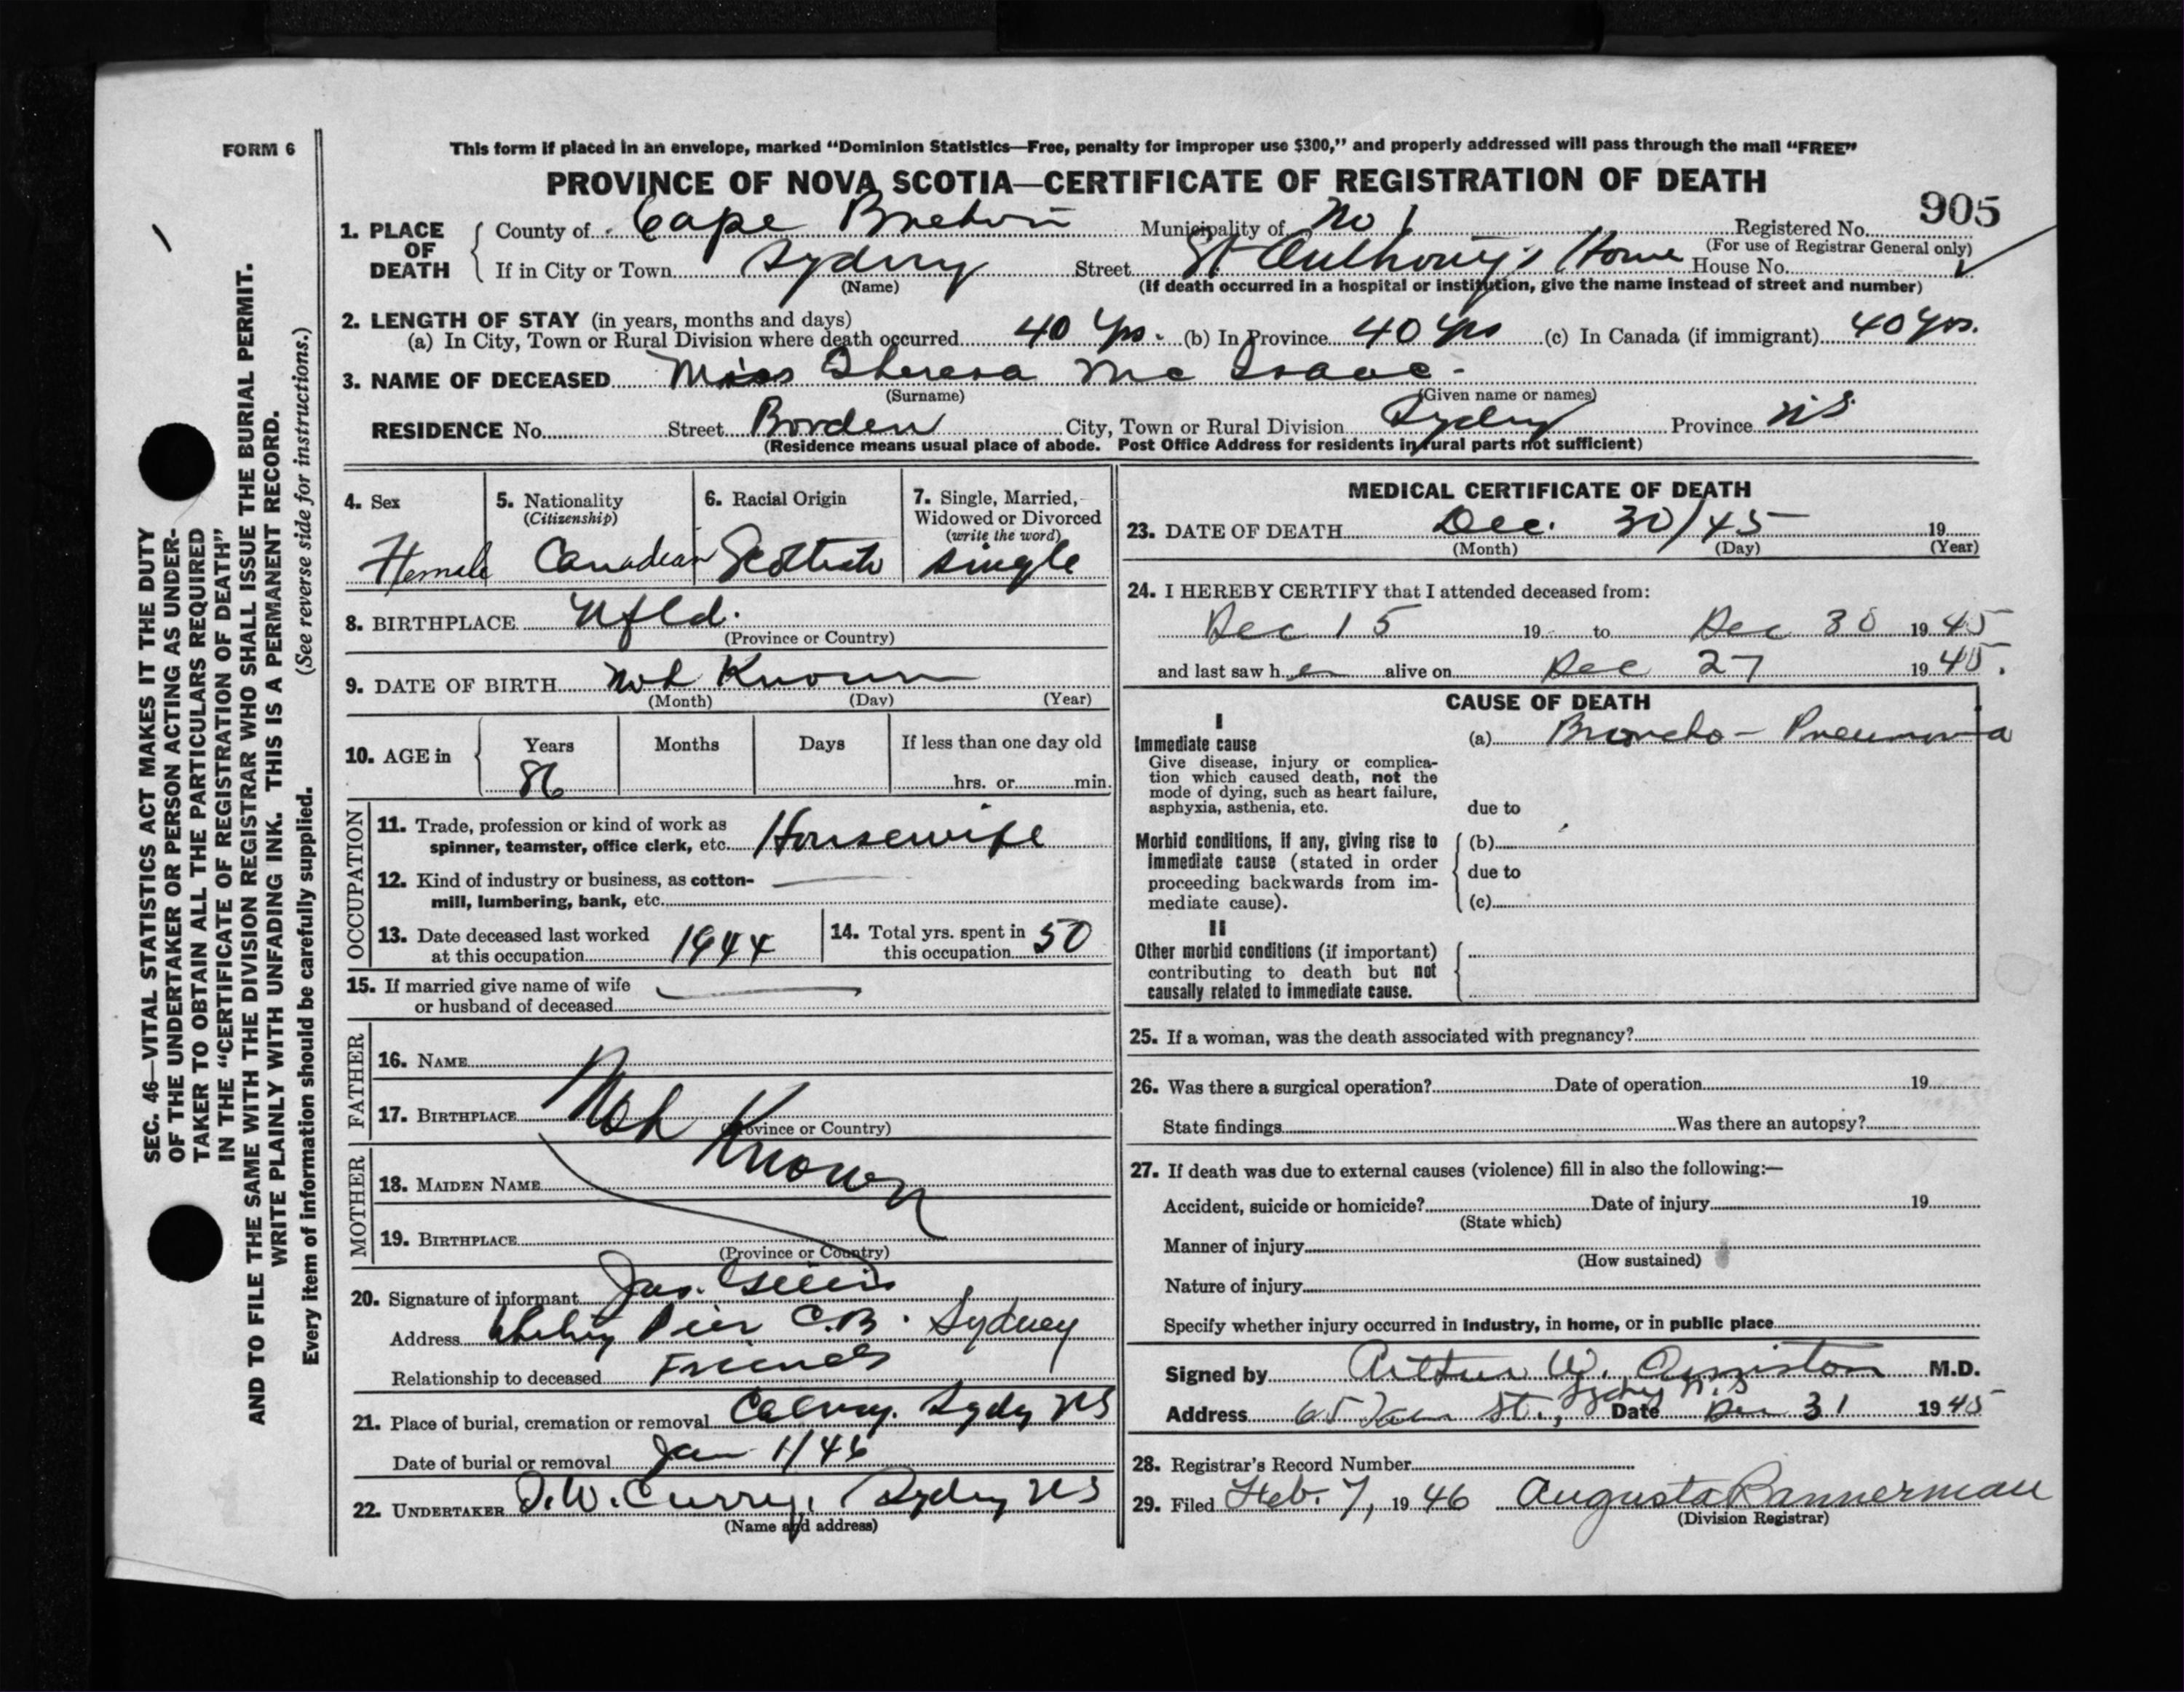 FORM 6
This form if placed in an envelope, marked “Dominion Statistics—Free, penalty for improper use $300,” and properly addressed will pass through the mail “FREE”
PROVINCE OF NOVA SCOTIA—CERTIFICATE OF REGISTRATION OF DEATH
905
1. PLACE OF DEATH
County of Cape Breton Municipality of No 1 Registered No.
(For use of Registrar General only)
If in City or Town Sydney Street St. Anthony's Home House No.
(Name) (If death occurred in a hospital or institution, give the name instead of street and number)
2. LENGTH OF STAY (in years, months and days)
(a) In City, Town or Rural Division where death occurred 40 Yrs. (b) In Province 40 Yrs (c) In Canada (if immigrant) 40 Yrs.
3. NAME OF DECEASED Miss Theresa Mc Isaac
(Surname) (Given name or names)
RESIDENCE No. Street Borden City, Town or Rural Division Sydney Province N.S.
(Residence means usual place of abode. Post Office Address for residents in rural parts not sufficient)
4. Sex 5. Nationality 6. Racial Origin 7. Single, Married,
(Citizenship) Widowed or Divorced
(write the word)
Female Canadian Scottish Single
8. BIRTHPLACE Nfld.
(Province or Country)
9. DATE OF BIRTH Not Known
(Month) (Day) (Year)
10. AGE in Years Months Days If less than one day old
86 hrs. or min.
OCCUPATION
11. Trade, profession or kind of work as
spinner, teamster, office clerk, etc. Housewife
12. Kind of industry or business, as cotton-
mill, lumbering, bank, etc.
13. Date deceased last worked
at this occupation 1944
14. Total yrs. spent in
this occupation 50
15. If married give name of wife
or husband of deceased
FATHER
16. NAME
17. BIRTHPLACE Not Known
(Province or Country)
MOTHER
18. MAIDEN NAME
19. BIRTHPLACE
(Province or Country)
20. Signature of informant Jas. Gillis
Address Whitney Pier C.B. Sydney
Relationship to deceased Friend
21. Place of burial, cremation or removal Calvary. Sydney NS
Date of burial or removal Jan 1/46
22. UNDERTAKER Curry, Sydney NS
(Name and address)
MEDICAL CERTIFICATE OF DEATH
23. DATE OF DEATH Dec. 30/45 19
(Month) (Day) (Year)
24. I HEREBY CERTIFY that I attended deceased from:
Dec 15 19 to Dec 30 1945
and last saw her alive on Dec 27 1945.
CAUSE OF DEATH
I
Immediate cause
Give disease, injury or complica-
tion which caused death, not the
mode of dying, such as heart failure,
asphyxia, asthenia, etc.
(a) Broncho-Pneumonia
due to
Morbid conditions, if any, giving rise to
immediate cause (stated in order
proceeding backwards from im-
mediate cause).
(b)
due to
(c)
II
Other morbid conditions (if important)
contributing to death but not
causally related to immediate cause.
25. If a woman, was the death associated with pregnancy?
26. Was there a surgical operation? Date of operation 19
State findings Was there an autopsy?
27. If death was due to external causes (violence) fill in also the following:—
Accident, suicide or homicide? Date of injury 19
(State which)
Manner of injury
(How sustained)
Nature of injury
Specify whether injury occurred in industry, in home, or in public place
Signed by Arthur W. Ormiston M.D.
Address 65 St., Sydney N.S Date Dec 31 1945
28. Registrar's Record Number
29. Filed Feb. 7, 1946 Augusta Bannerman
(Division Registrar)
SEC. 46—VITAL STATISTICS ACT MAKES IT THE DUTY
OF THE UNDERTAKER OR PERSON ACTING AS UNDER-
TAKER TO OBTAIN ALL THE PARTICULARS REQUIRED
IN THE “CERTIFICATE OF REGISTRATION OF DEATH”
AND TO FILE THE SAME WITH THE DIVISION REGISTRAR WHO SHALL ISSUE THE BURIAL PERMIT.
WRITE PLAINLY WITH UNFADING INK. THIS IS A PERMANENT RECORD.
Every item of information should be carefully supplied. (See reverse side for instructions.)